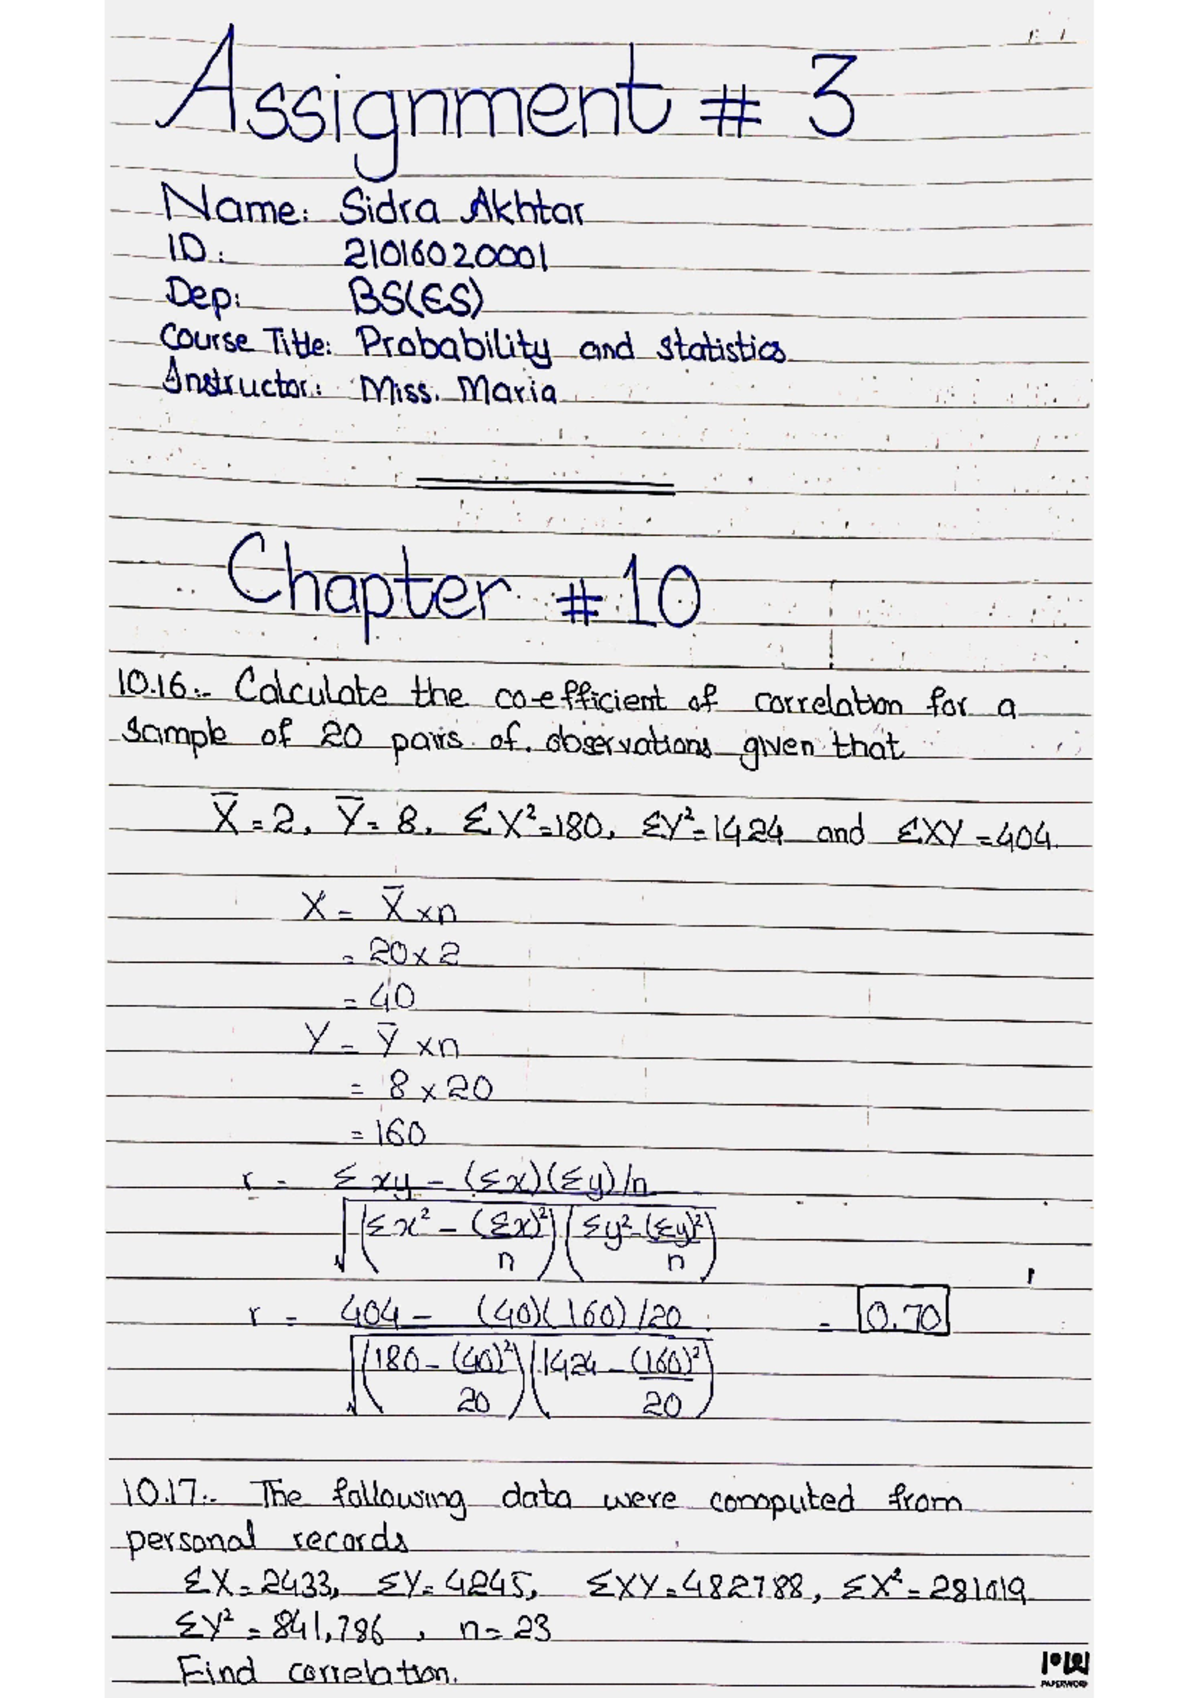 Assignment # 3
Name: Sidra Akhtar
ID: 21016020001
Dep: BS(ES)
Course Title: Probability and statistics
Instructor: Miss. Maria
Chapter # 10
10.16:- Calculate the co-efficient of correlation for a
sample of 20 pairs of observations given that
X̄ = 2, Ȳ = 8, ΣX² = 180, ΣY² = 1424 and ΣXY = 404.
X = X̄ × n
= 20 × 2
= 40
Y = Ȳ × n
= 8 × 20
= 160
r = Σxy - (Σx)(Σy)/n
√(Σx² - (Σx)²/n)(Σy² - (Σy)²/n)
r = 404 - (40)(160)/20 = 0.70
√(180 - (40)²/20)(1424 - (160)²/20)
10.17:- The following data were computed from
personal records
ΣX = 2433, ΣY = 4245, ΣXY = 482788, ΣX² = 281019
ΣY² = 841,786, n = 23
Find correlation.
PAPERWORD